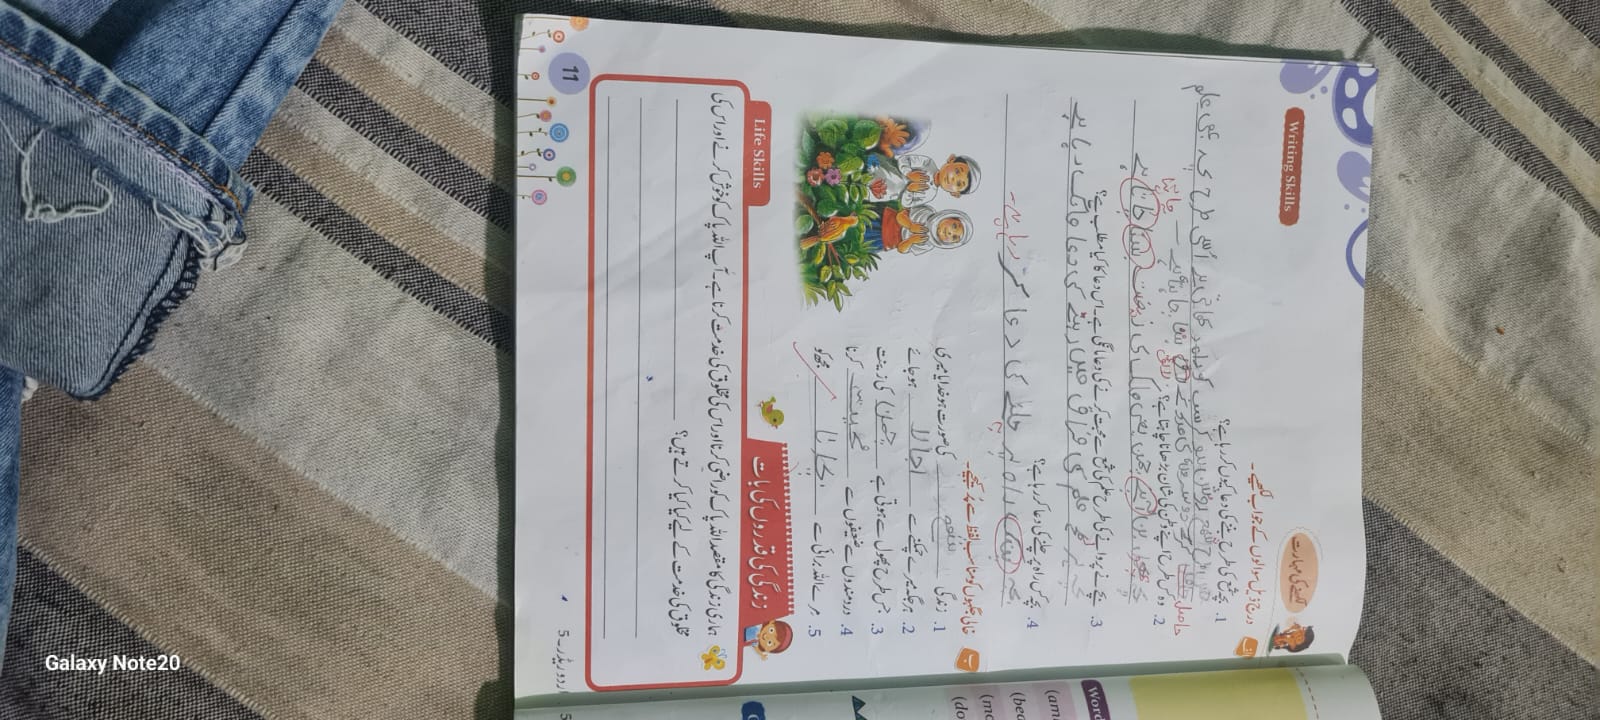 Writing Skills
لکھنے کی مہارت
الف درج ذیل سوالوں کے جواب لکھیے ۔
1. بچہ شمع کی طرح بننے کی دعا کیوں کر رہا ہے؟
طرح شمع روشن ہو کر سب کو راہ دکھاتی ہے اُسی طرح بچہ بھی علم
حاصل کرکے دوسروں کی مدد کے لائق بننا چاہتا ہے ۔
لائق چاہتا
2. وہ کس طرح اپنے وطن کی شان بڑھانا چاہتا ہے؟
بچہ پھول بن چمن یعنی ملک کی زینت ہے
3. بچے نے پروانے کی طرح علم کی شمع سے محبت کرنے کی دعا مانگی ہے۔ اس دعا کا کیا مطلب ہے؟
بچہ ہر علم کی میں رہنے کی دعا مانگ رہا ہے
4. بچہ کس راہ پر چلنے کی دعا کر رہا ہے؟
بچہ راہ پر چلنے کی دعا کر رہا ہے۔
ب خالی جگہوں کو مناسب لفظ سے پُر کیجیے۔
1. زندگی شمع کی صورت ہو خدایا میری
2. ہر جگہ میرے چمکنے سے اجالا ہو جائے
3. جس طرح پھول سے ہوتی ہے چمن کی زینت
4. دردمندوں سے ضعیفوں سے محبت کرنا
5. مرے اللہ برائی سے بچانا مجھ کو
Life Skills
زندگی کی قدروں کی بات
ہماری زندگی کا مقصد اللہ پاک کو راضی کرنا اور اس کی مخلوق کی خدمت کرنا ہے۔ آپ اللہ پاک کو خوش کرنے اور اس کی
مخلوق کی خدمت کے لیے کیا کیا کرتے ہیں؟
11
اردو ریڈر۔5
Word
(am
(bea
(mo
(do
5
Galaxy Note20